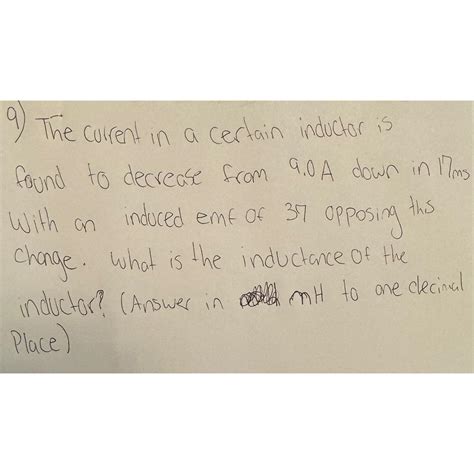 9) The current in a certain inductor is
found to decrease from 9.0A down in 17ms
With an induced emf of 37 opposing this
change. What is the inductance of the
inductor? (Answer in mH to one decimal
Place)